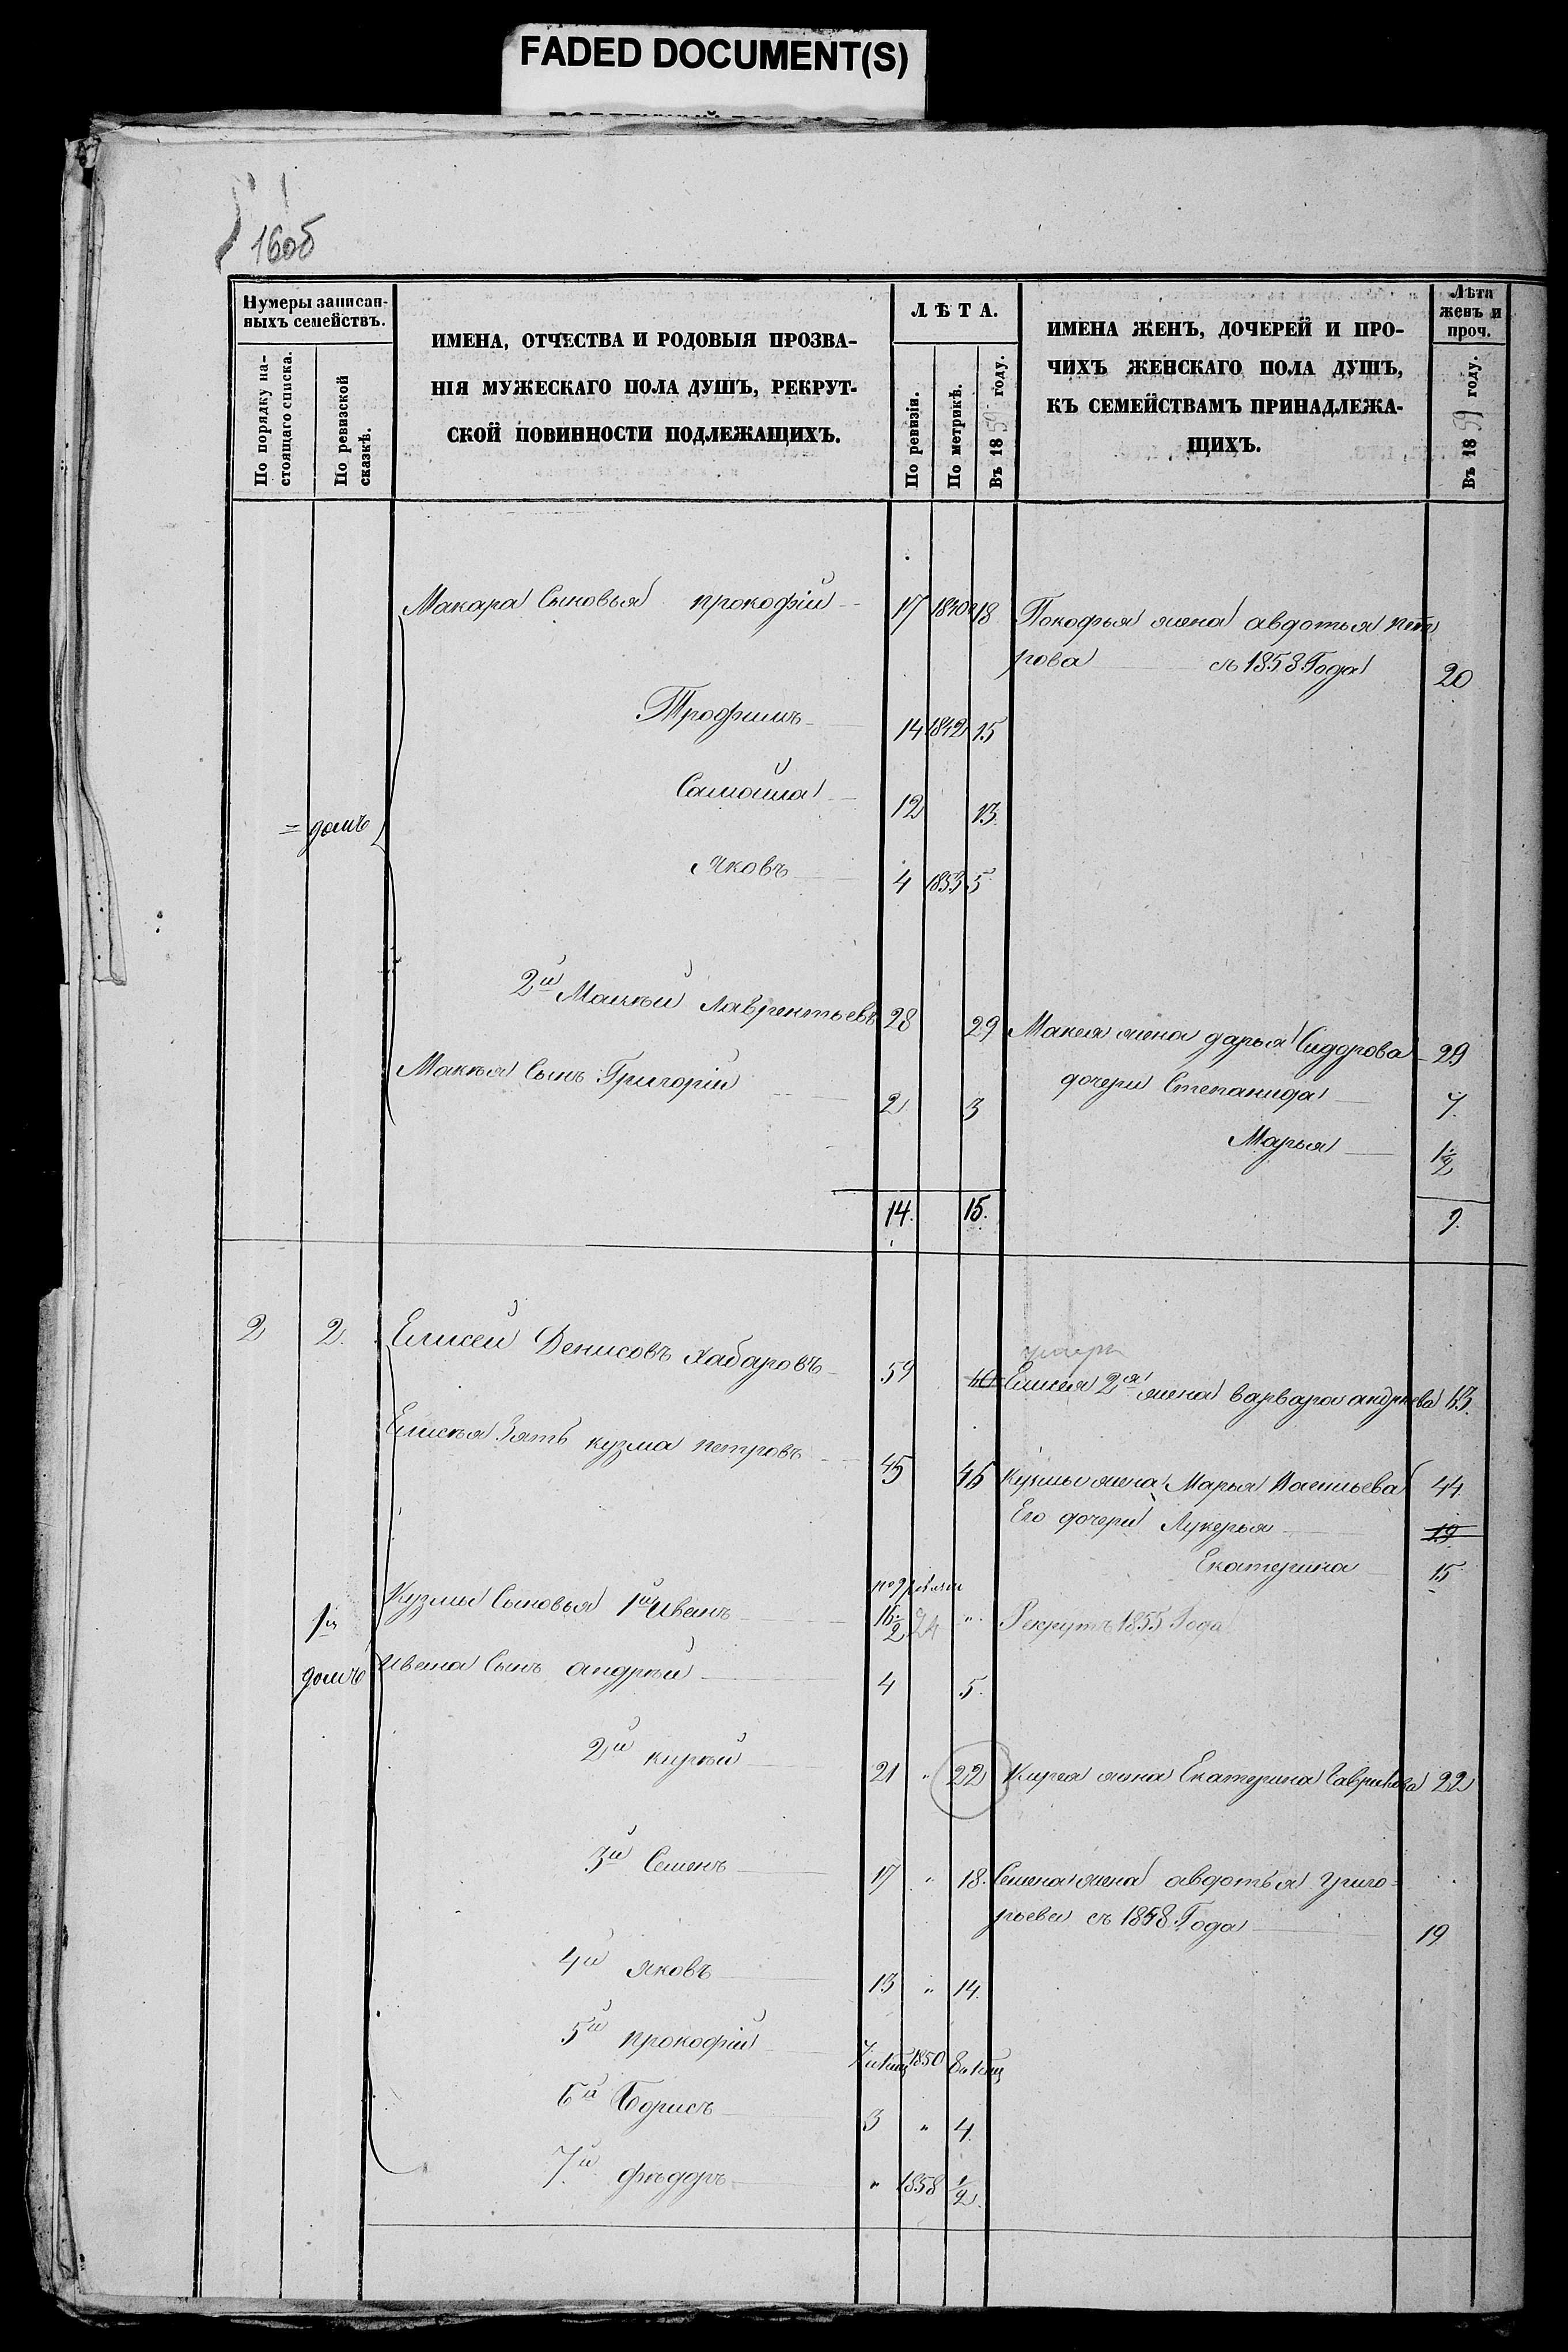 FADED DOCUMENT(S)
160б
Нумеры записан-
ныхъ семействъ.
По порядку на-
стоящаго списка.
По ревизской
сказкѣ.
ИМЕНА, ОТЧЕСТВА И РОДОВЫЯ ПРОЗВА-
НІЯ МУЖЕСКАГО ПОЛА ДУШЪ, РЕКРУТ-
СКОЙ ПОВИННОСТИ ПОДЛЕЖАЩИХЪ.
ЛѢТА.
По ревизіи.
По метрикѣ.
Въ 1859 году.
ИМЕНА ЖЕНЪ, ДОЧЕРЕЙ И ПРО-
ЧИХЪ ЖЕНСКАГО ПОЛА ДУШЪ,
КЪ СЕМЕЙСТВАМЪ ПРИНАДЛЕЖА-
ЩИХЪ.
Лѣта
женъ и
проч.
Въ 1859 году.
Макара Сыновья прокофій 17 1840 18 Покофья жена авдотья пет
рова съ 1858 Года 20
Трофимъ 14 1842 15
Самойла 12 13.
= домъ
яковъ 4 1853 5
2й Макѣй лаврентьевъ 28 29 Макея жена дарья Сидорова 29
Макѣя Сынъ Григорій 2 3 дочери Степанида 7.
Марья 1½
14. 15. 9.
2 2. Елисей Денисовъ хабаровъ 59 60 Елисея 2я жена варвара андреева 43.
Елисѣя Зять кузма петровъ 45 46 Кузмы жена Марья Васильева 44.
Его дочери Лукерья 19.
Екатерина 15
Кузмы Сыновья 1й Иванъ 16½ 24 " Рекрутъ 1855 Года
1й
домъ Ивана Сынъ андрѣй 4 5.
2й кирѣй 21 " 22 Кирея жена Екатерина Гаврилова 22
3й Семенъ 17 " 18. Семена жена авдотья григо-
рьева съ 1858 Года 19
4й яковъ 13 " 14.
5й прокофій 1850
6й Борисъ 3 " 4.
7й фѣдоръ " 1858 ½